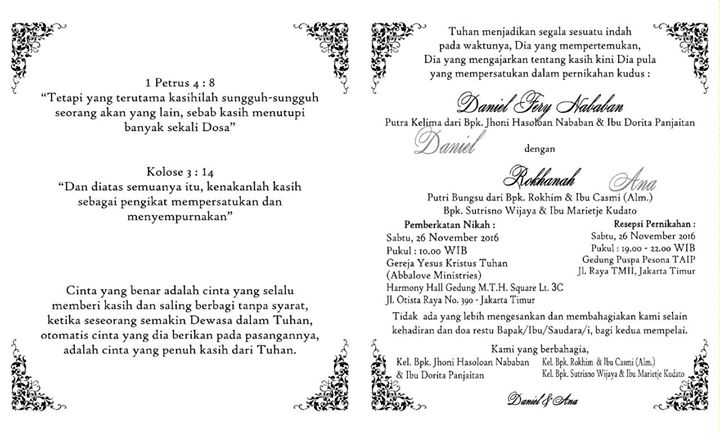 1 Petrus 4 : 8
“Tetapi yang terutama kasihilah sungguh-sungguh
seorang akan yang lain, sebab kasih menutupi
banyak sekali Dosa”
Kolose 3 : 14
“Dan diatas semuanya itu, kenakanlah kasih
sebagai pengikat mempersatukan dan
menyempurnakan”
Cinta yang benar adalah cinta yang selalu
memberi kasih dan saling berbagi tanpa syarat,
ketika seseorang semakin Dewasa dalam Tuhan,
otomatis cinta yang dia berikan pada pasangannya,
adalah cinta yang penuh kasih dari Tuhan.
Tuhan menjadikan segala sesuatu indah
pada waktunya, Dia yang mempertemukan,
Dia yang mengajarkan tentang kasih kini Dia pula
yang mempersatukan dalam pernikahan kudus :
Daniel Fery Nababan
Putra Kelima dari Bpk. Jhoni Hasoloan Nababan & Ibu Dorita Panjaitan
Daniel
dengan
Rokhanah
Ana
Putri Bungsu dari Bpk. Rokhim & Ibu Casmi (Alm.)
Bpk. Sutrisno Wijaya & Ibu Marietje Kudato
Pemberkatan Nikah :
Sabtu, 26 November 2016
Pukul : 10.00 WIB
Gereja Yesus Kristus Tuhan
(Abbalove Ministries)
Harmony Hall Gedung M.T.H. Square Lt. 3C
Jl. Otista Raya No. 390 - Jakarta Timur
Resepsi Pernikahan :
Sabtu, 26 November 2016
Pukul : 19.00 - 22.00 WIB
Gedung Puspa Pesona TAIP
Jl. Raya TMII, Jakarta Timur
Tidak ada yang lebih mengesankan dan membahagiakan kami selain
kehadiran dan doa restu Bapak/Ibu/Saudara/i, bagi kedua mempelai.
Kami yang berbahagia,
Kel. Bpk. Jhoni Hasoloan Nababan
& Ibu Dorita Panjaitan
Kel. Bpk. Rokhim & Ibu Casmi (Alm.)
Kel. Bpk. Sutrisno Wijaya & Ibu Marietje Kudato
Daniel & Ana